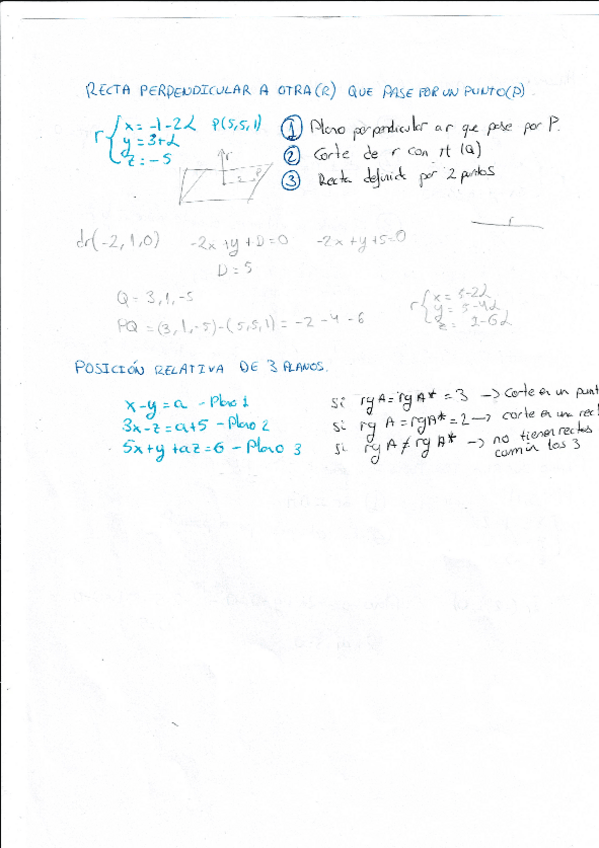 RECTA PERPENDICULAR A OTRA (R) QUE PASE POR UN PUNTO (P).
r { x = -1-2λ P(5,5,1)
y = 3+λ
z = -5
① Plano perpendicular a r que pase por P.
② Corte de r con π (Q)
③ Recta definida por 2 puntos
r
P
r
dr(-2,1,0) -2x+y+D=0 -2x+y+5=0
D=5
Q = 3,1,-5
PQ = (3,1,-5)-(5,5,1) = -2 -4 -6
r { x = 5-2λ
y = 5-4λ
z = 2-6λ
POSICIÓN RELATIVA DE 3 PLANOS.
x-y=a - Plano 1
3x-z=a+5 - Plano 2
5x+y+az=6 - Plano 3
Si rg A = rg A* = 3 -> Corte en un punt
Si rg A = rg A* = 2 -> corte en una rec
Si rg A ≠ rg A* -> no tienen rectas
común los 3